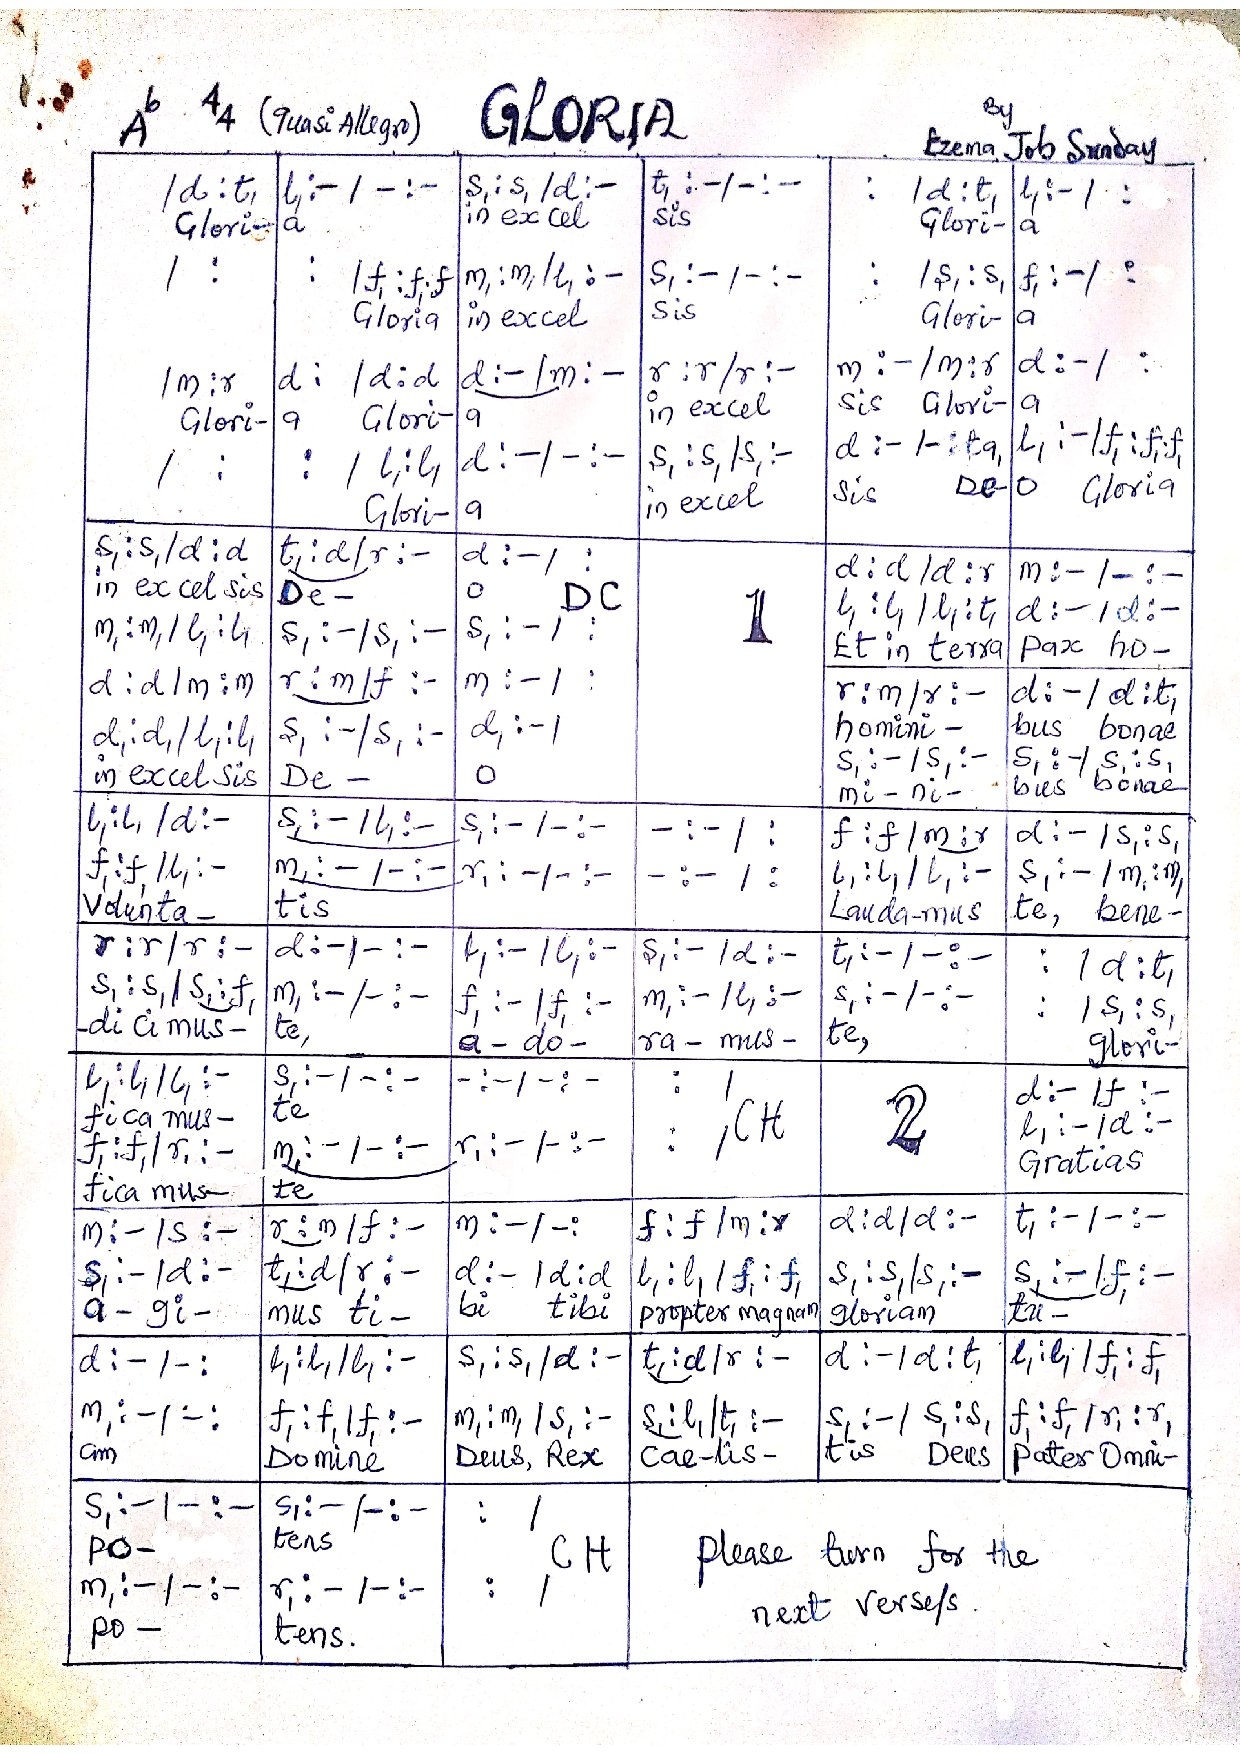 Ab 4/4 (Quasi Allegro) GLORIA By
Ezema Job Sunday
/d:t, l,:-/-:- s,:s,/d:- t,:-/-:- : /d:t, l,:-/ :
Glori- a in excel sis Glori- a
/ : : /f,:f,.f m,:m,/l,:- s,:-/-:- : /s,:s, f,:-/ :
Gloria in excel sis Glori- a
/m:r d: /d:d d:-/m:- r:r/r:- m:-/m:r d:-/ :
Glori- a Glori- a in excel sis Glori- a
/ : : /l,:l, d:-/-:- s,:s,/s,:- d:-/-:ta, l,:-/f,:f,.f,
Glori- a in excel sis De- o Gloria
s,:s,/d:d t,:d/r:- d:-/ : 1 d:d/d:r m:-/-:-
in excelsis De- o DC
m,:m,/l,:l, s,:-/s,:- s,:-/ : l,:l,/l,:t, d:-/d:-
Et in terra pax ho-
d:d/m:m r:m/f:- m:-/ : r:m/r:- d:-/d:t,
homini- bus bonae
d,:d,/l,:l, s,:-/s,:- d,:-/ s,:-/s,:- s,:-/s,:s,
in excelsis De- o mi-ni- bus bonae
l,:l,/d:- s,:-/l,:- s,:-/-:- -:-/ : f:f/m:r d:-/s,:s,
f,:f,/l,:- m,:-/-:- r,:-/-:- -:-/ : l,:l,/l,:- s,:-/m,:m,
Volunta- tis Lauda-mus te, bene-
r:r/r:- d:-/-:- l,:-/l,:- s,:-/d:- t,:-/-:- : /d:t,
s,:s,/s,:f, m,:-/-:- f,:-/f,:- m,:-/l,:- s,:-/-:- : /s,:s,
-di cimus- te, a-do- ra-mus- te, glori-
l,:l,/l,:- s,:-/-:- -:-/-:- : / 2 d:-/f:-
fica mus- te CH l,:-/d:-
f,:f,/r,:- m,:-/-:- r,:-/-:- : / Gratias
fica mus- te
m:-/s:- r:m/f:- m:-/-: f:f/m:r d:d/d:- t,:-/-:-
s,:-/d:- t,:d/r:- d:-/d:d l,:l,/f,:f, s,:s,/s,:- s,:-/f,:-
a-gi- mus ti- bi tibi propter magnam gloriam tu-
d:-/-: l,:l,/l,:- s,:s,/d:- t,:d/r:- d:-/d:t, l,:l,/f,:f,
m,:-/-: f,:f,/f,:- m,:m,/s,:- s,:l,/t,:- s,:-/s,:s, f,:f,/r,:r,
am Domine Deus, Rex Cae-lis- tis Deus Pater Omni-
s,:-/-:- s,:-/-:- : /
po- tens CH please turn for the
m,:-/-:- r,:-/-:- : / next verse/s.
po- tens.